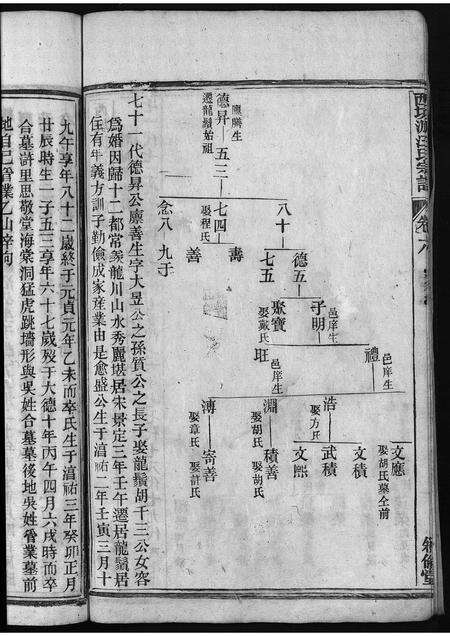 汪氏宗譜
卷六
廩膳生
德昇
遷龍鬚始祖
五三
八十
七四
娶程氏
念八
九于
德五
七五
壽
善
子明
邑庠生
聚寶
娶戴氏
邑庠生
禮
邑庠生
玨
浩
娶方氏
淵
娶胡氏
溥
娶章氏
文應
娶胡氏墓仝前
文積
武積
文熙
積善
娶胡氏
寄善
娶許氏
七十一代德昇公廩善生字大昱公之孫質公之長子娶龍鬚胡千三公女容
為婚因歸十二都常羨龍川山水秀麗堪居宋景定三年壬午遷居龍鬚居
住有年義方訓子勤儉成家產業由是愈盛公生于淳祐二年壬寅三月十
九午享年八十二歲終于元貞元年乙未而卒氏生于淳祐三年癸卯正月
廿辰時生一子五三享年六十七歲歿于大德十年丙午四月六戌時而卒
合墓滸里思敬堂海棠洞猛虎跳墻形與吳姓合墓墓後地吳姓管業墓前
地自己管業乙山辛向